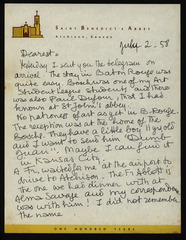 SAINT BENEDICT'S ABBEY
ATCHISON, KANSAS
July 2 - 58
Dearest -
Yesterday I sent you the telegram on
arrival. The stay in Baton Rouge was
quite easy. Bosche was one of my Art
Student League students and there
was also Paul Dufour, that I had
honours at St John's abbey.
No patroner of art as yet in B. Rouge.
The reception was at the home of the
Bosche. They have a little boy 11 y. old
and I want to send him
. Maybe I can find it
in Kansas City.
A Fr. waited me at the airport to
drive to Atchison. The Fr. Abbott is
the one we had dinner with at
Alma Savage and my correspondent
was with him! I did not remember
the name
ONE HUNDRED YEARS